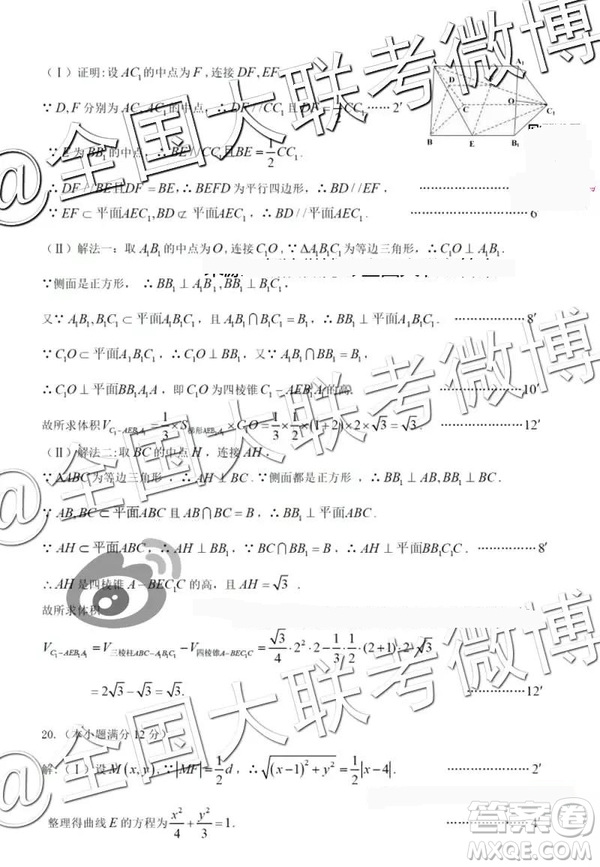 （Ⅰ）证明：设 AC₁ 的中点为 F，连接 DF, EF.
∵ D, F 分别为 AC, AC₁ 的中点，∴ DF // CC₁ 且 DF = 1/2 CC₁ …… 2′
∵ E 为 BB₁ 的中点，∴ BE // CC₁ 且 BE = 1/2 CC₁
∴ DF // BE 且 DF = BE，∴ BEFD 为平行四边形，∴ BD // EF，
∵ EF ⊂ 平面AEC₁, BD ⊄ 平面AEC₁，∴ BD // 平面AEC₁. …………… 6
（Ⅱ）解法一：取 A₁B₁ 的中点为 O，连接 C₁O，∵ ΔA₁B₁C₁ 为等边三角形，∴ C₁O ⊥ A₁B₁
∵ 侧面是正方形，∴ BB₁ ⊥ A₁B₁, BB₁ ⊥ B₁C₁，
又∵ A₁B₁, B₁C₁ ⊂ 平面A₁B₁C₁，且 A₁B₁ ∩ B₁C₁ = B₁，∴ BB₁ ⊥ 平面A₁B₁C₁. ………… 8′
∵ C₁O ⊂ 平面A₁B₁C₁，∴ C₁O ⊥ BB₁，又∵ A₁B₁ ∩ BB₁ = B₁，
∴ C₁O ⊥ 平面BB₁A₁A，即 C₁O 为四棱锥 C₁ − AEB₁A₁ 的高. …………10′
故所求体积 V_{C₁−AEB₁A₁} = 1/3 × S_{梯形AEB₁A₁} × C₁O = 1/3 × 1/2 × (1+2) × 2 × √3 = √3. ………… 12′
（Ⅱ）解法二：取 BC 的中点 H，连接 AH，
∵ ΔABC 为等边三角形，∴ AH ⊥ BC. ∵ 侧面都是正方形，∴ BB₁ ⊥ AB, BB₁ ⊥ BC.
∵ AB, BC ⊂ 平面ABC 且 AB ∩ BC = B，∴ BB₁ ⊥ 平面ABC.
∵ AH ⊂ 平面ABC，∴ AH ⊥ BB₁，∴ AH ⊥ 平面BCC₁B₁. …………… 8′
∴ AH 是四棱锥 A − BEC₁C 的高，且 AH = √3 .
故所求体积
V_{C₁−AEB₁A₁} = V_{三棱柱ABC−A₁B₁C₁} − V_{四棱锥A−BEC₁C} = √3/4 · 2² · 2 − 1/3 · 1/2 · (2+1) · 2 · √3
= 2√3 − √3 = √3. …………… 12′
20. （本小题满分 12 分）
解：（Ⅰ）设 M(x, y)，∵ |MF| = 1/2 d，∴ √((x−1)² + y²) = 1/2 |x−4|. …………… 2′
整理得曲线 E 的方程为 x²/4 + y²/3 = 1. …………… 4′
@全国大联考微博
@全国大联考微博
@全国大联考微博
答案圈
MXQE.COM